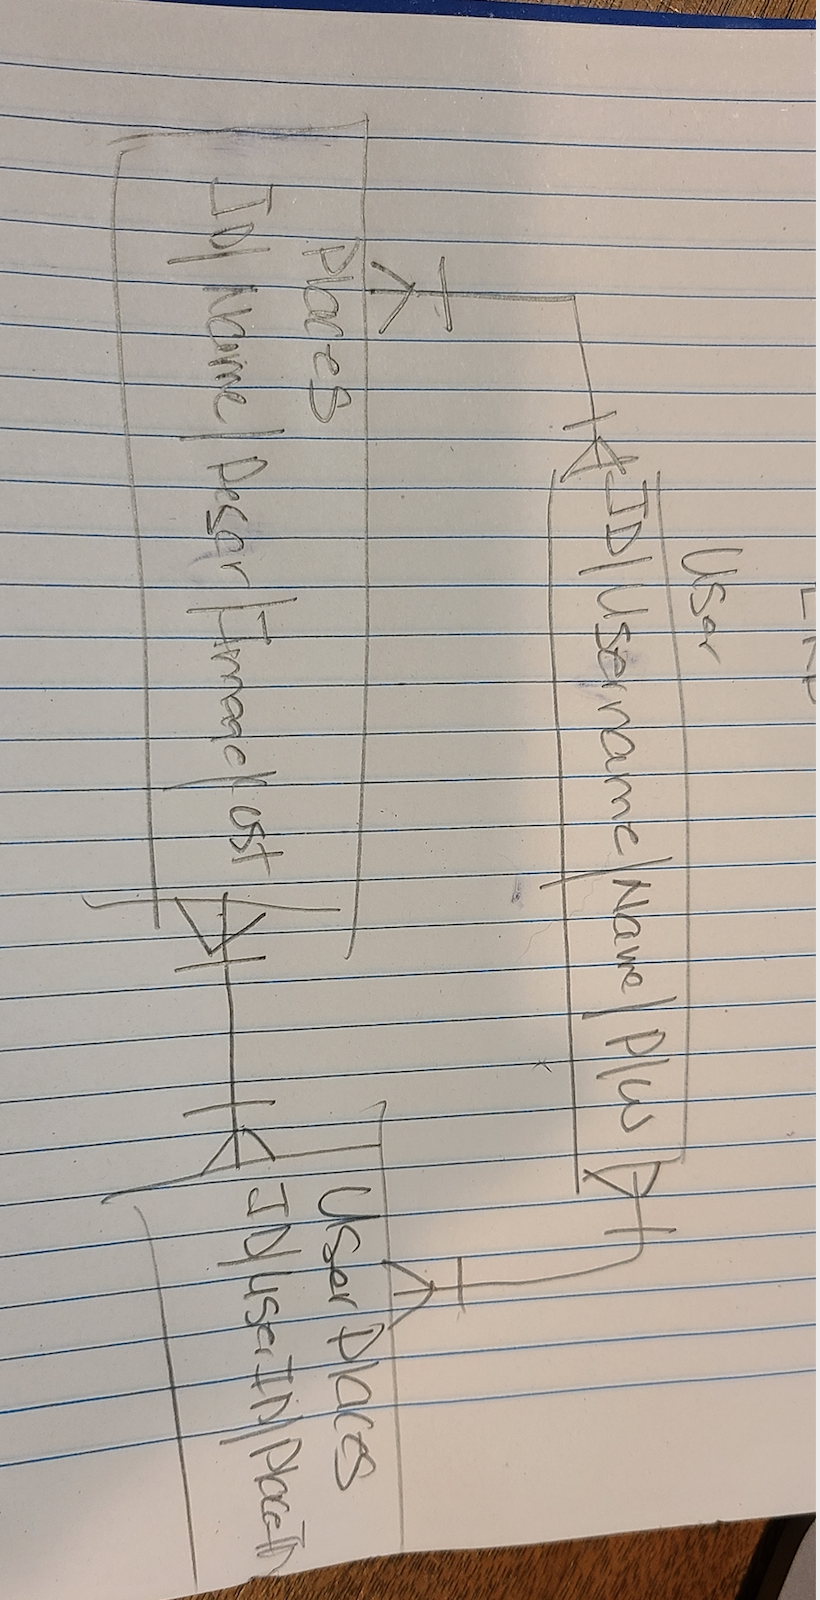 User
ID/Username/Name/P/W
Places
ID/Name/Descr/Image/Cost
User Places
ID/UserID/PlaceID